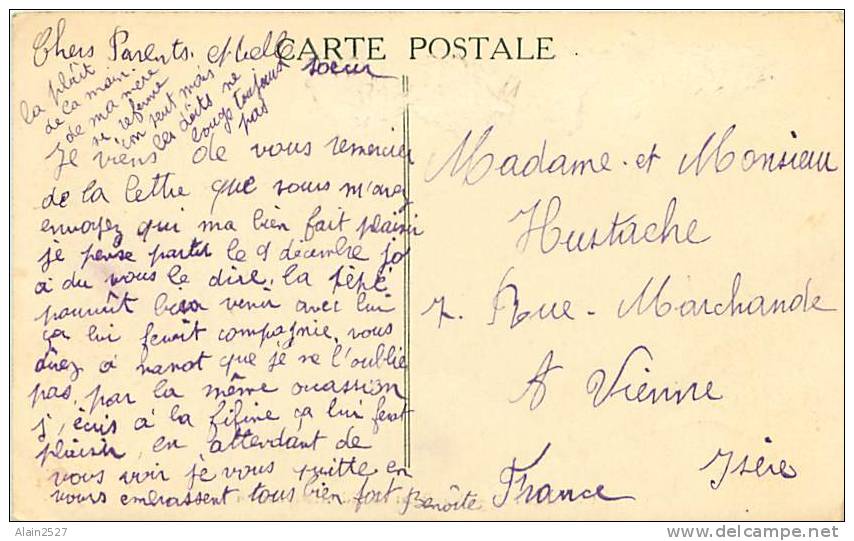 CARTE POSTALE
Chers Parents et belle
soeur
la plait
de ca main
de ma mère
se referme
on peut mais
les doits ne
bouge toujours
pas
Je viens de vous remercier
de la lettre que vous m'avez
envoyez qui ma bien fait plaisir
je pense partir le 9 décembre jo
a du vous le dire, la pépé
pourrait bien venir avec lui
ça lui ferait compagnie, vous
direz a nanot que je ne l'oublie
pas, par la même occassion
j'écris a la fifine ça lui ferat
plaisir, en attendant de
vous voir je vous quitte en
vous embrassent tous bien fort Benoîte
Madame et Monsieur
Hustache
7. Rue - Marchande
A Vienne
Isère
France
Alain2527
www.delcampe.net